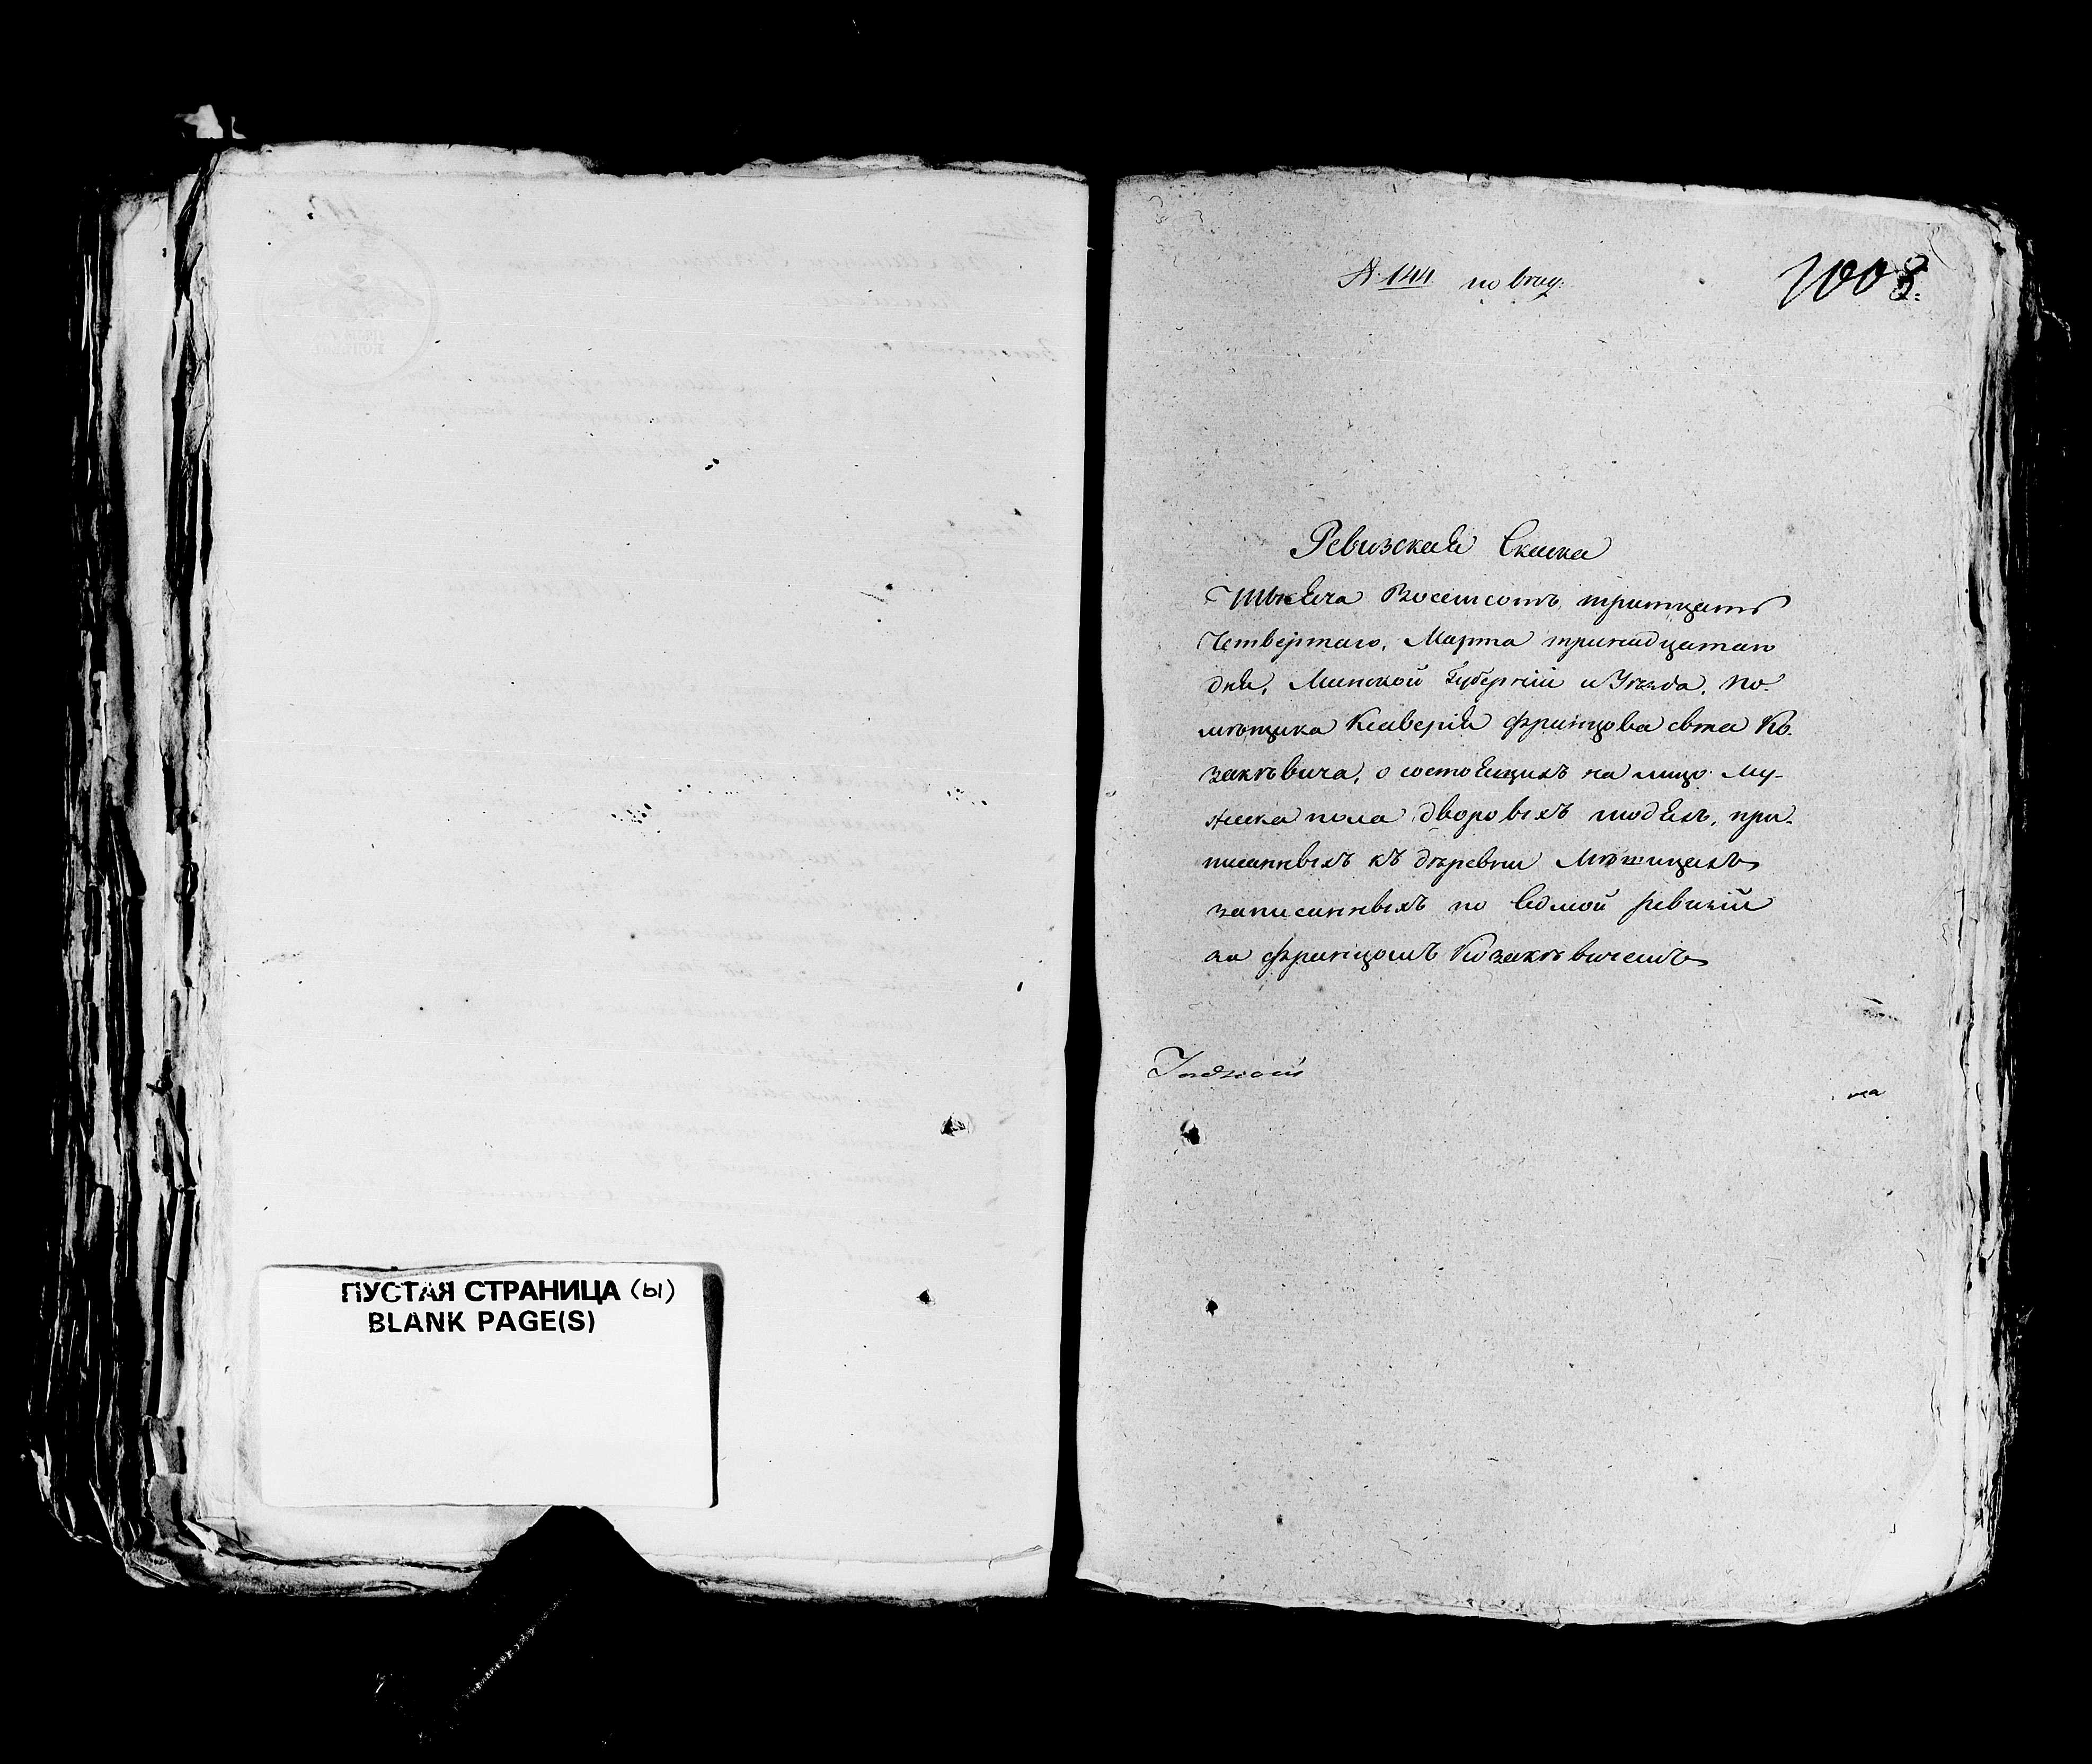 ПУСТАЯ СТРАНИЦА (ы)
BLANK PAGE(S)
№ 144 по
1008
Ревизская Скаска
Тысяча Восемсотъ тритцать
Четвертаго, Марта тринадцатаго
дня, Минской Губерніи и Уезда, по-
мѣщика Ксаверія Францова сына Ко-
закѣвича, о состоящихъ на лицо му-
жеска пола дворовыхъ людяхъ, при-
писанныхъ къ дѣревни
записанныхъ по Седмой ревизіи
за Францомъ Козакѣвичемъ